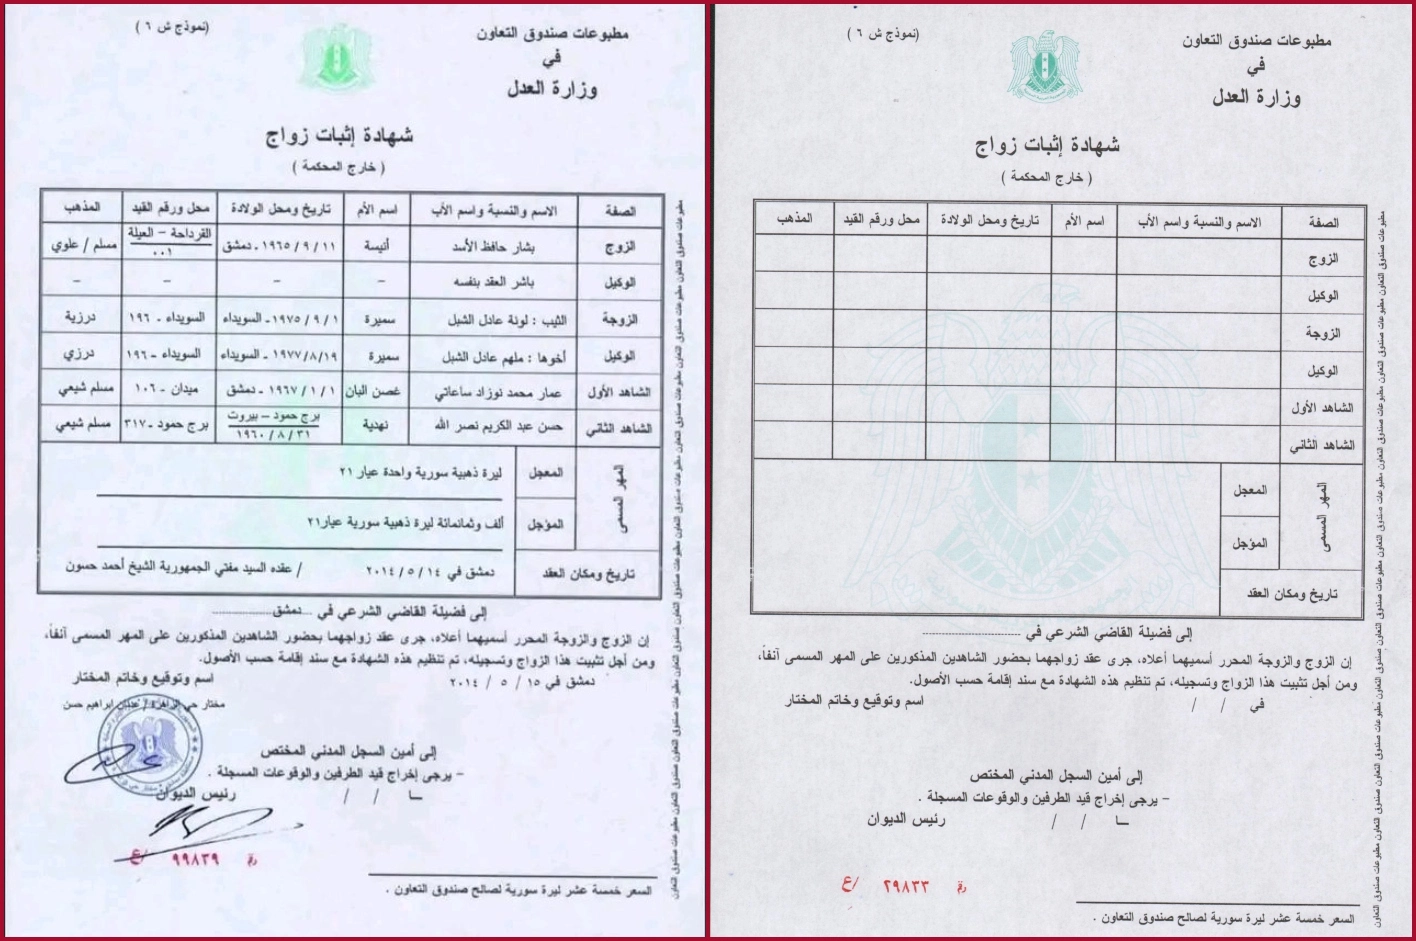 (نموذج ش ٦)
مطبوعات صندوق التعاون
في
وزارة العدل
شهادة إثبات زواج
( خارج المحكمة )
الصفة الاسم والنسبة واسم الأب اسم الأم تاريخ ومحل الولادة محل ورقم القيد المذهب
الزوج بشار حافظ الأسد أنيسة ١١ / ٩ / ١٩٦٥ - دمشق القرداحة - العيلة ٠٠١ مسلم / علوي
الوكيل باشر العقد بنفسه - - - -
الزوجة الثيب : لونة عادل الشبل سميرة ١ / ٩ / ١٩٧٥ - السويداء السويداء - ١٩٦ درزية
الوكيل أخوها : ملهم عادل الشبل سميرة ١٩٧٧/٨/١٩ - السويداء السويداء - ١٩٦ درزي
الشاهد الأول عمار محمد نوزاد ساعاتي غصن البان ١ / ١ / ١٩٦٧ - دمشق ميدان - ١٠٦ مسلم شيعي
الشاهد الثاني حسن عبد الكريم نصر الله نهدية برج حمود - بيروت ٣١ / ٨ / ١٩٦٠ برج حمود - ٣١٧ مسلم شيعي
المهر المسمى
المعجل ليرة ذهبية سورية واحدة عيار ٢١
المؤجل ألف وثمانمائة ليرة ذهبية سورية عيار٢١
تاريخ ومكان العقد دمشق في ١٤ / ٥ / ٢٠١٤ / عقده السيد مفتي الجمهورية الشيخ أحمد حسون
إلى فضيلة القاضي الشرعي في دمشق
إن الزوج والزوجة المحرر أسميهما أعلاه، جرى عقد زواجهما بحضور الشاهدين المذكورين على المهر المسمى آنفاً،
ومن أجل تثبيت هذا الزواج وتسجيله، تم تنظيم هذه الشهادة مع سند إقامة حسب الأصول.
دمشق في ١٥ / ٥ / ٢٠١٤ اسم وتوقيع وخاتم المختار
مختار حي الزاهرة / عدنان ابراهيم حسن
إلى أمين السجل المدني المختص
- يرجى إخراج قيد الطرفين والوقوعات المسجلة .
/ / رئيس الديوان
٩٩٨٣٩
السعر خمسة عشر ليرة سورية لصالح صندوق التعاون .
مطبوعات صندوق التعاون مطبوعات صندوق التعاون مطبوعات صندوق التعاون
(نموذج ش ٦)
مطبوعات صندوق التعاون
في
وزارة العدل
شهادة إثبات زواج
( خارج المحكمة )
الصفة الاسم والنسبة واسم الأب اسم الأم تاريخ ومحل الولادة محل ورقم القيد المذهب
الزوج
الوكيل
الزوجة
الوكيل
الشاهد الأول
الشاهد الثاني
المهر المسمى
المعجل
المؤجل
تاريخ ومكان العقد
إلى فضيلة القاضي الشرعي في
إن الزوج والزوجة المحرر أسميهما أعلاه، جرى عقد زواجهما بحضور الشاهدين المذكورين على المهر المسمى آنفاً،
ومن أجل تثبيت هذا الزواج وتسجيله، تم تنظيم هذه الشهادة مع سند إقامة حسب الأصول.
في / / اسم وتوقيع وخاتم المختار
إلى أمين السجل المدني المختص
- يرجى إخراج قيد الطرفين والوقوعات المسجلة .
/ / رئيس الديوان
٢٩٨٣٣
السعر خمسة عشر ليرة سورية لصالح صندوق التعاون .
مطبوعات صندوق التعاون مطبوعات صندوق التعاون مطبوعات صندوق التعاون